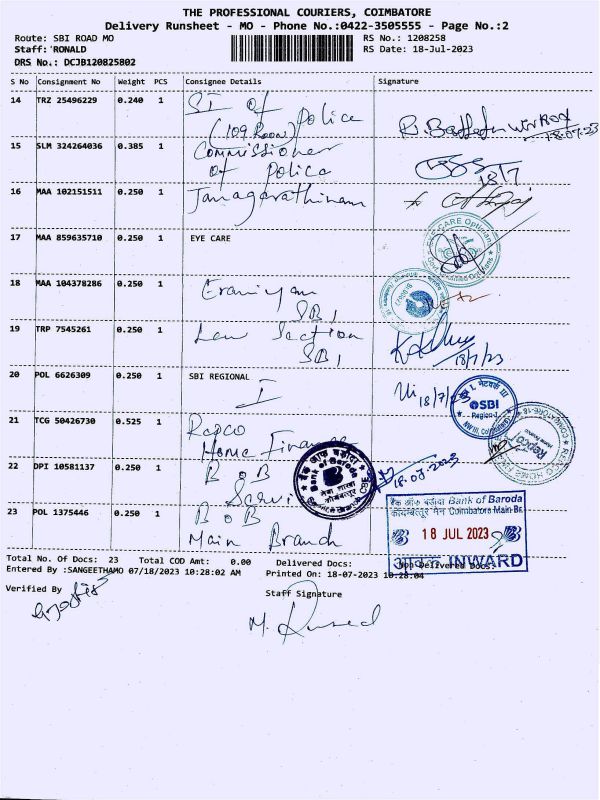 THE PROFESSIONAL COURIERS, COIMBATORE
Delivery Runsheet - MO - Phone No.:0422-3505555 - Page No.:2
Route: SBI ROAD MO
RS No.: 1208258
Staff: 'RONALD
RS Date: 18-Jul-2023
DRS No.: DCJB120825802
S No Consignment No Weight PCS Consignee Details Signature
14 TRZ 25496229 0.240 1 SI of Police
(109 Room)
18.07.23
15 SLM 324264036 0.385 1 Commissioner
of Police
18/7
16 MAA 102151511 0.250 1 Janagarathinam
17 MAA 859635710 0.250 1 EYE CARE
EYE CARE Opticians
18 MAA 104378286 0.250 1 Eraniyan
SBI
19 TRP 7545261 0.250 1 Law Section
SBI
18/7/23
20 POL 6626309 0.250 1 SBI REGIONAL
I
18/7/23
SBI
Region-I
21 TCG 50426730 0.525 1 Repco
Home Finance
Repco
22 DPI 10581137 0.250 1 BOB
Servi
बैंक ऑफ़ बड़ौदा
Bank of Baroda
18.07.2023
23 POL 1375446 0.250 1 BOB
Main Branch
बैंक ऑफ़ बड़ौदा Bank of Baroda
कोयम्बत्तूर मेन Coimbatore Main Br.
18 JUL 2023
आवक INWARD
Total No. Of Docs: 23 Total COD Amt: 0.00 Delivered Docs: Non Delivered Docs:
Entered By :SANGEETHAMO 07/18/2023 10:28:02 AM Printed On: 18-07-2023 10:28:04
Verified By
Staff Signature